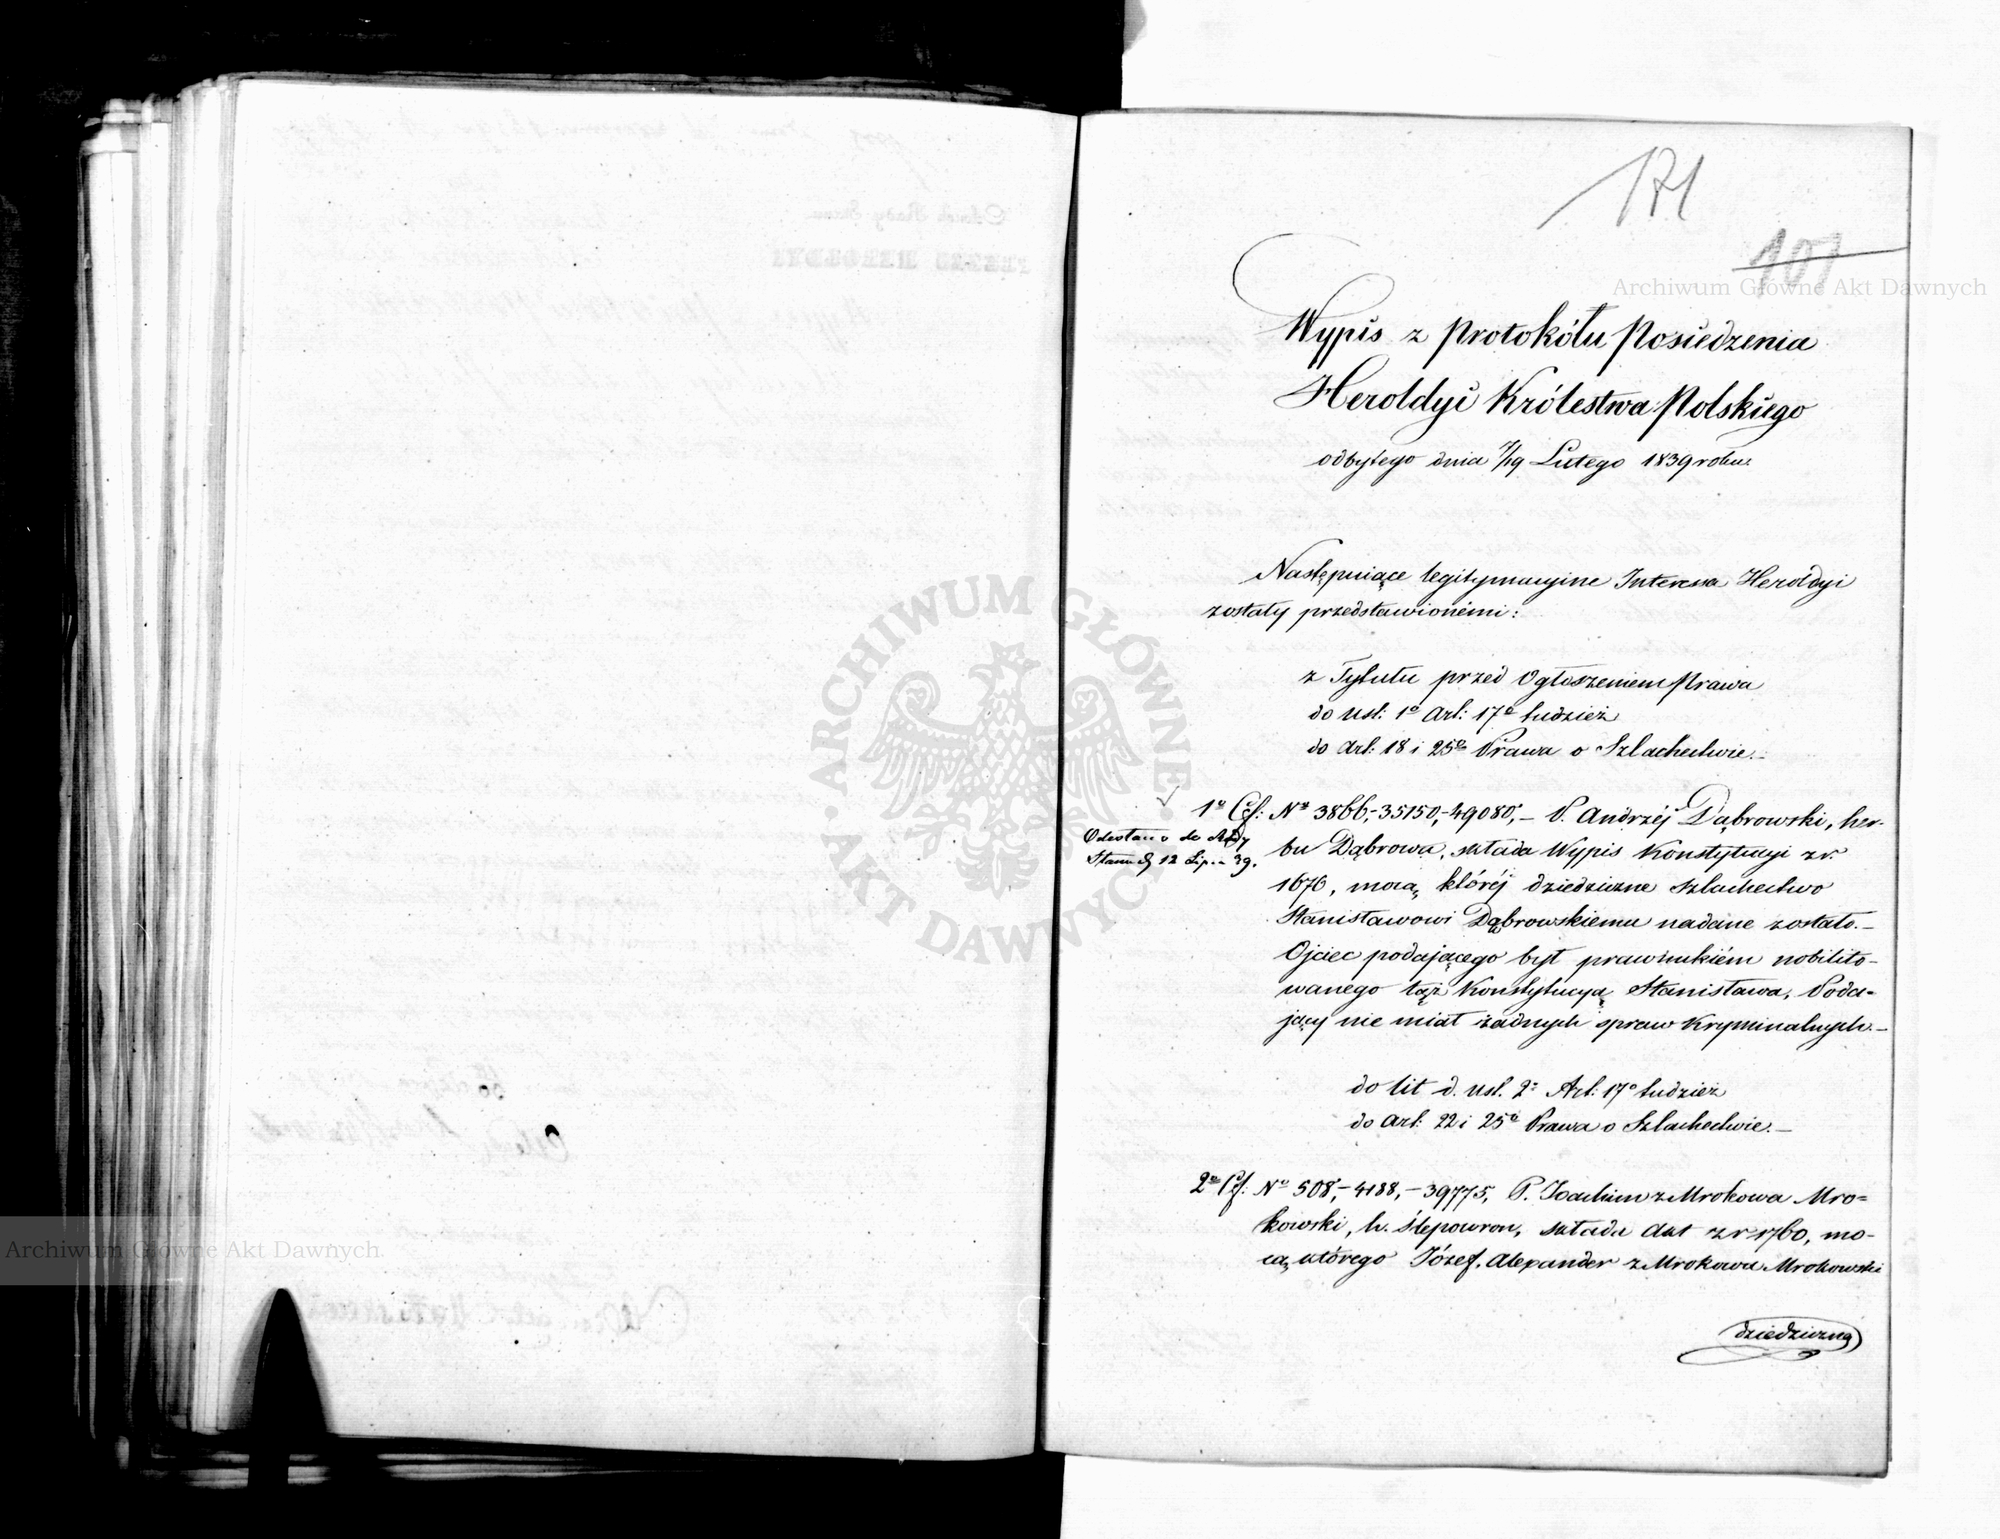 171
101
Wypis z Protokółu Posiedzenia
Heroldyi Królestwa Polskiego
odbytego dnia 7/19 Lutego 1839 roku.
Następuiące legitymacyine Interessa Heroldyi
zostały przedstawionemi:
z Tytułu przed Ogłoszeniem Prawa
do Ust: 1º Art: 17º tudzież
do Art: 18 i 25º Prawa o Szlachectwie.
1º Cf: Nº 3866,-35150,-49080,- P. Andrzéj Dąbrowski, her-
Odesłano do Rady
Stanu d. 12 Lip. 39.
bu Dąbrowa, składa Wypis Konstytucyi z r.
1676, mocą któréj dziedziczne szlachectwo
Stanisławowi Dąbrowskiemu nadane zostało.-
Ojciec podającego był prawnukiém nobilito-
wanego tąż Konstytucyą Stanisława. Poda-
jący nie miał żadnych spraw Kryminalnych.-
do lit d. Ust. 2º Art: 17º tudzież
do Art: 22 i 25º Prawa o Szlachectwie.-
2º Cf: Nº 508,-4188,-39775, P. Joachim z Mrokowa Mro-
kowski, h. Ślepowron, składa Akt z r 1760, mo-
cą którego Józef, Alexander z Mrokowa Mrokowski
dziedziczną
Archiwum Główne Akt Dawnych
Archiwum Główne Akt Dawnych
ARCHIWUM GŁÓWNE · AKT DAWNYCH ·